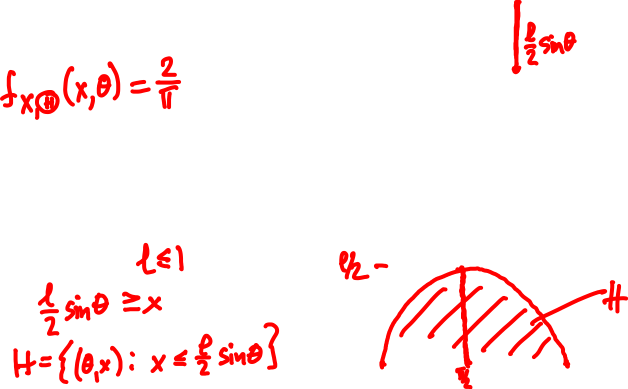 ℓ/2 sinθ
f_{X,Θ}(x,θ) = 2/π
ℓ ≤ 1
ℓ/2 sinθ ≥ x
ℓ/2 –
H
H = {(θ,x) : x ≤ ℓ/2 sinθ}
π/2